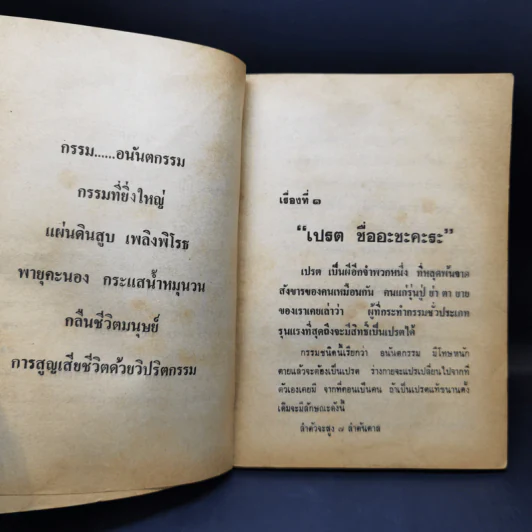 กรรม......อนันตกรรม
กรรมที่ยิ่งใหญ่
แผ่นดินสูบ เพลิงพิโรธ
พายุคะนอง กระแสน้ำหมุนวน
กลืนชีวิตมนุษย์
การสูญเสียชีวิตด้วยวิปริตกรรม
เรื่องที่ ๑
“เปรต ชื่ออะชะคะระ”
เปรต เป็นผีอีกจำพวกหนึ่ง ที่หลุดพ้นจาก
สังขารของคนเหมือนกัน คนแก่รุ่นปู่ ย่า ตา ยาย
ของเราเคยเล่าว่า ผู้ที่กระทำกรรมชั่วประเภท
รุนแรงที่สุดถึงจะมีสิทธิ์เป็นเปรตได้
กรรมชนิดนี้เรียกว่า อนันตกรรม มีโทษหนัก
ตายแล้วจะต้องเป็นเปรต ร่างกายจะแปรเปลี่ยนไปจากที่
ตัวเองเคยมี จากที่ตอนเป็นคน ถ้าเป็นเปรตแท้ขนานดั้ง
เดิมจะมีลักษณะดังนี้
ลำตัวจะสูง ๗ ลำต้นตาล